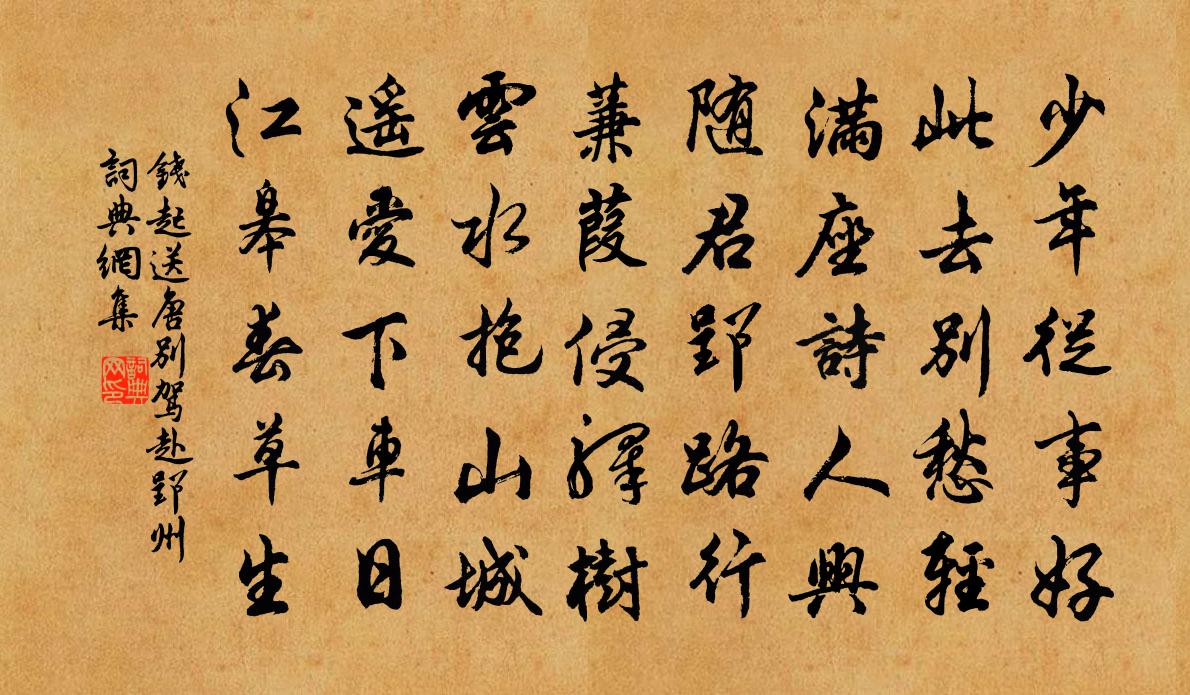 少年從事好
此去別愁輕
滿座詩人興
随君郢路行
蒹葭侵驛樹
雲水抱山城
遥愛下車日
江皋春草生
錢起送唐別駕赴郢州
詞典網集
詞典网印